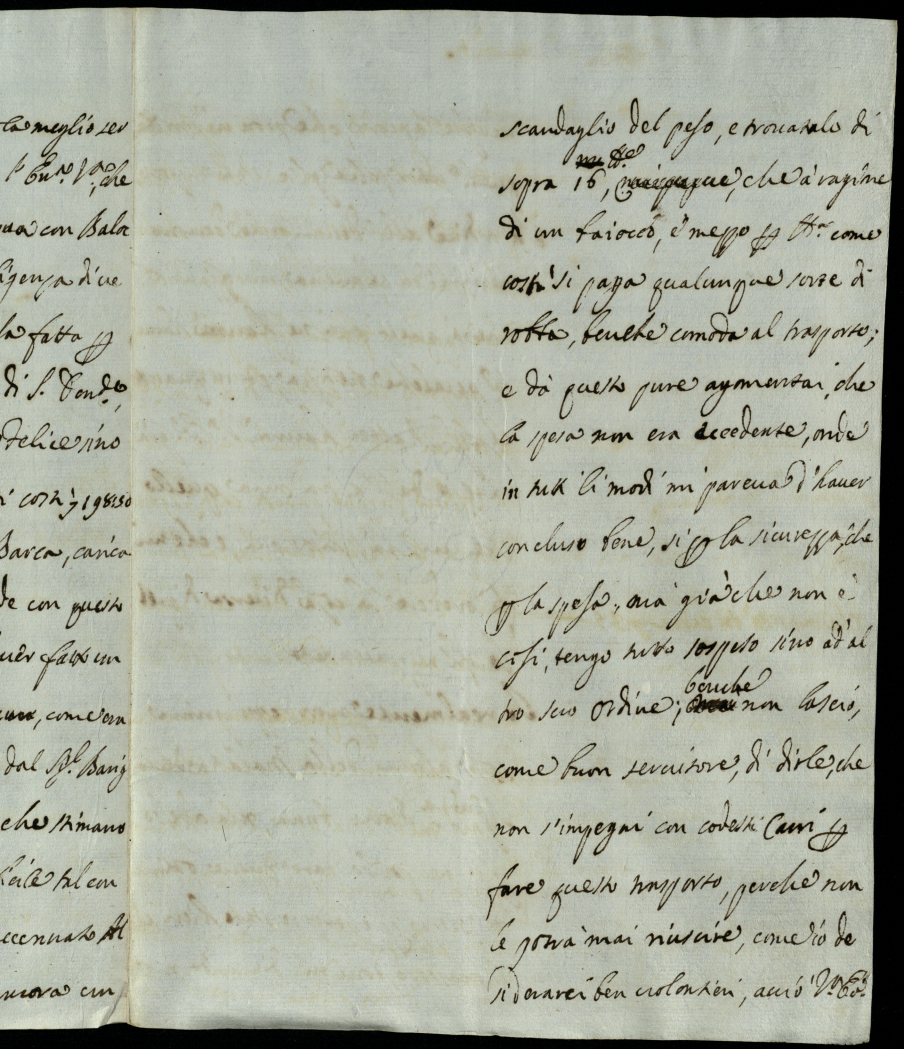 la meglio ser
Em.ª V.ª, che
con Bala
ligenza di ve
la fatta ꝑ
di S. Dend.e,
delice sino
i costì 198:50
Barca, carica
de con questo
uer fatto un
, come era
dal Sig.r Barig
che stimano
ficile tal con
ccennato Al
ancora un
scandaglio del peso, e trovatolo di
sopra 16, che à ragione
di un baiocco, e mezzo ꝑ come
costì si paga qualunque sorte di
robba, benche comoda al trasporto;
e da questo pure agomentai, che
la spesa non era eccedente, onde
in tutti li modi mi pareva d'haver
concluso bene, si ꝑ la sicurezza, che
ꝑ la spesa, mà già che non è
cosi, tengo tutto sospeso sino ad'al
tro suo ordine; benche non lascio,
come buon servitore, di dirle, che
non s'impegni con codesti Carri ꝑ
fare questo trasporto, perche non
le potrà mai riuscire, come io de
siderarei ben volontieri, acciò V.ª Em.ª